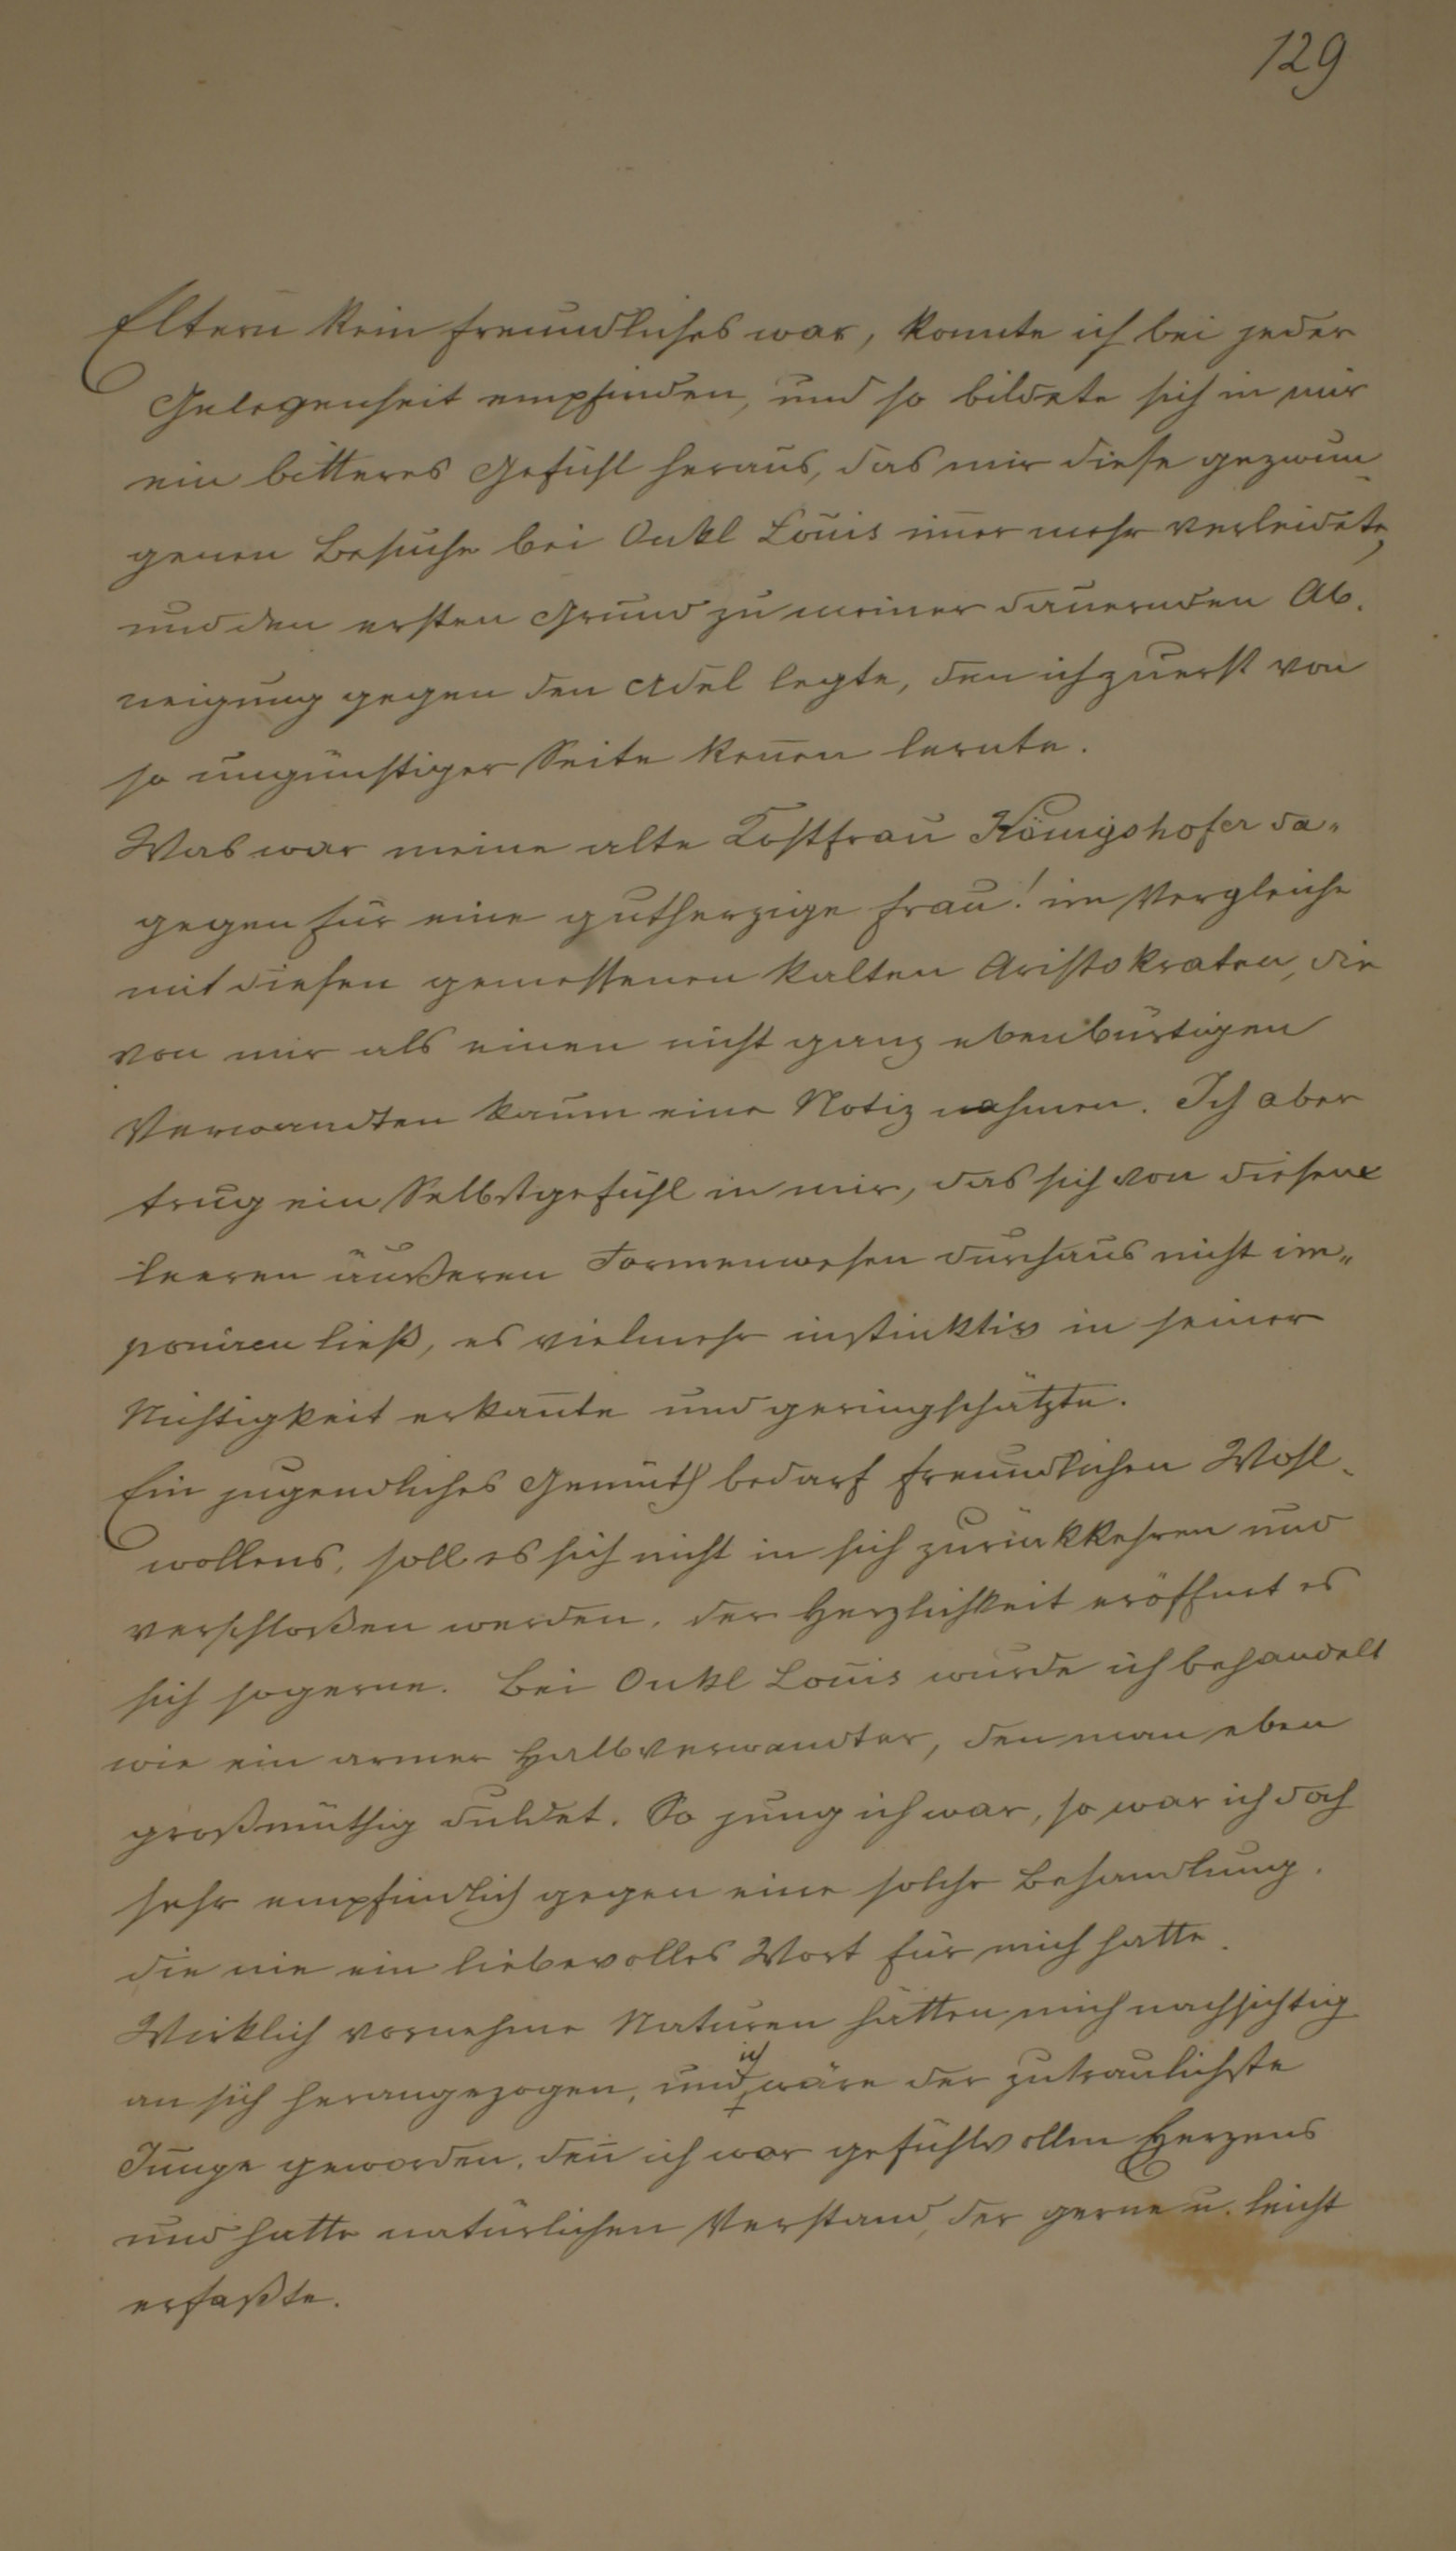 129
Eltern kein freundliches war, konnte ich bei jeder
Gelegenheit empfinden, und so bildete sich in mir
ein bitteres Gefühl heraus, das mir diese gezwun-
genen Besuche bei Onkl Louis im̄er mehr verleidete,
und den ersten Grund zu meiner dauernden Ab-
neigung gegen den Adel legte, den ich zuerst von
so ungünstiger Seite ken̄en lernte.
Was war meine alte Kostfrau Königshofer da-
gegen für eine gutherzige Frau! im Vergleiche
mit diesen gemessenen kalten Aristokraten, die
von mir als einen nicht ganz ebenbürtigen
Verwandten kaum eine Notiz nahmen. Ich aber
trug ein Selbstgefühl in mir, das sich von diesem
leeren äußeren Formenwesen durchaus nicht im-
poniren ließ, es vielmehr instinktiv in seiner
Nichtigkeit erkan̄te und geringschätzte.
Ein jugendliches Gemüth bedarf freundlichen Wohl-
wollens, soll es sich nicht in sich zurückkehren und
verschloßen werden. der Herzlichkeit eröffnet es
sich so gerne. Bei Onkl Louis wurde ich behandelt
wie ein armer Halbverwandter, den man eben
großmüthig duldet. So jung ich war, so war ich doch
sehr empfindlich gegen eine solche Behandlung.
die nie ein liebevolles Wort für mich hatte.
Wirklich vornehme Naturen hätten mich nachsichtig
an sich herangezogen, und ich wäre der zutraulichste
Junge geworden, den̄ ich war gefühlvollen Herzens
und hatte natürlichen Verstand, der gerne u. leicht
erfaßte.